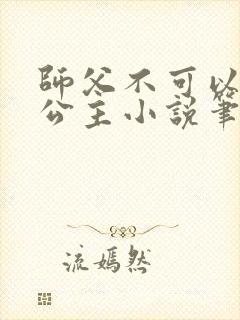 師父不可以
公主小說筆
流嫣然